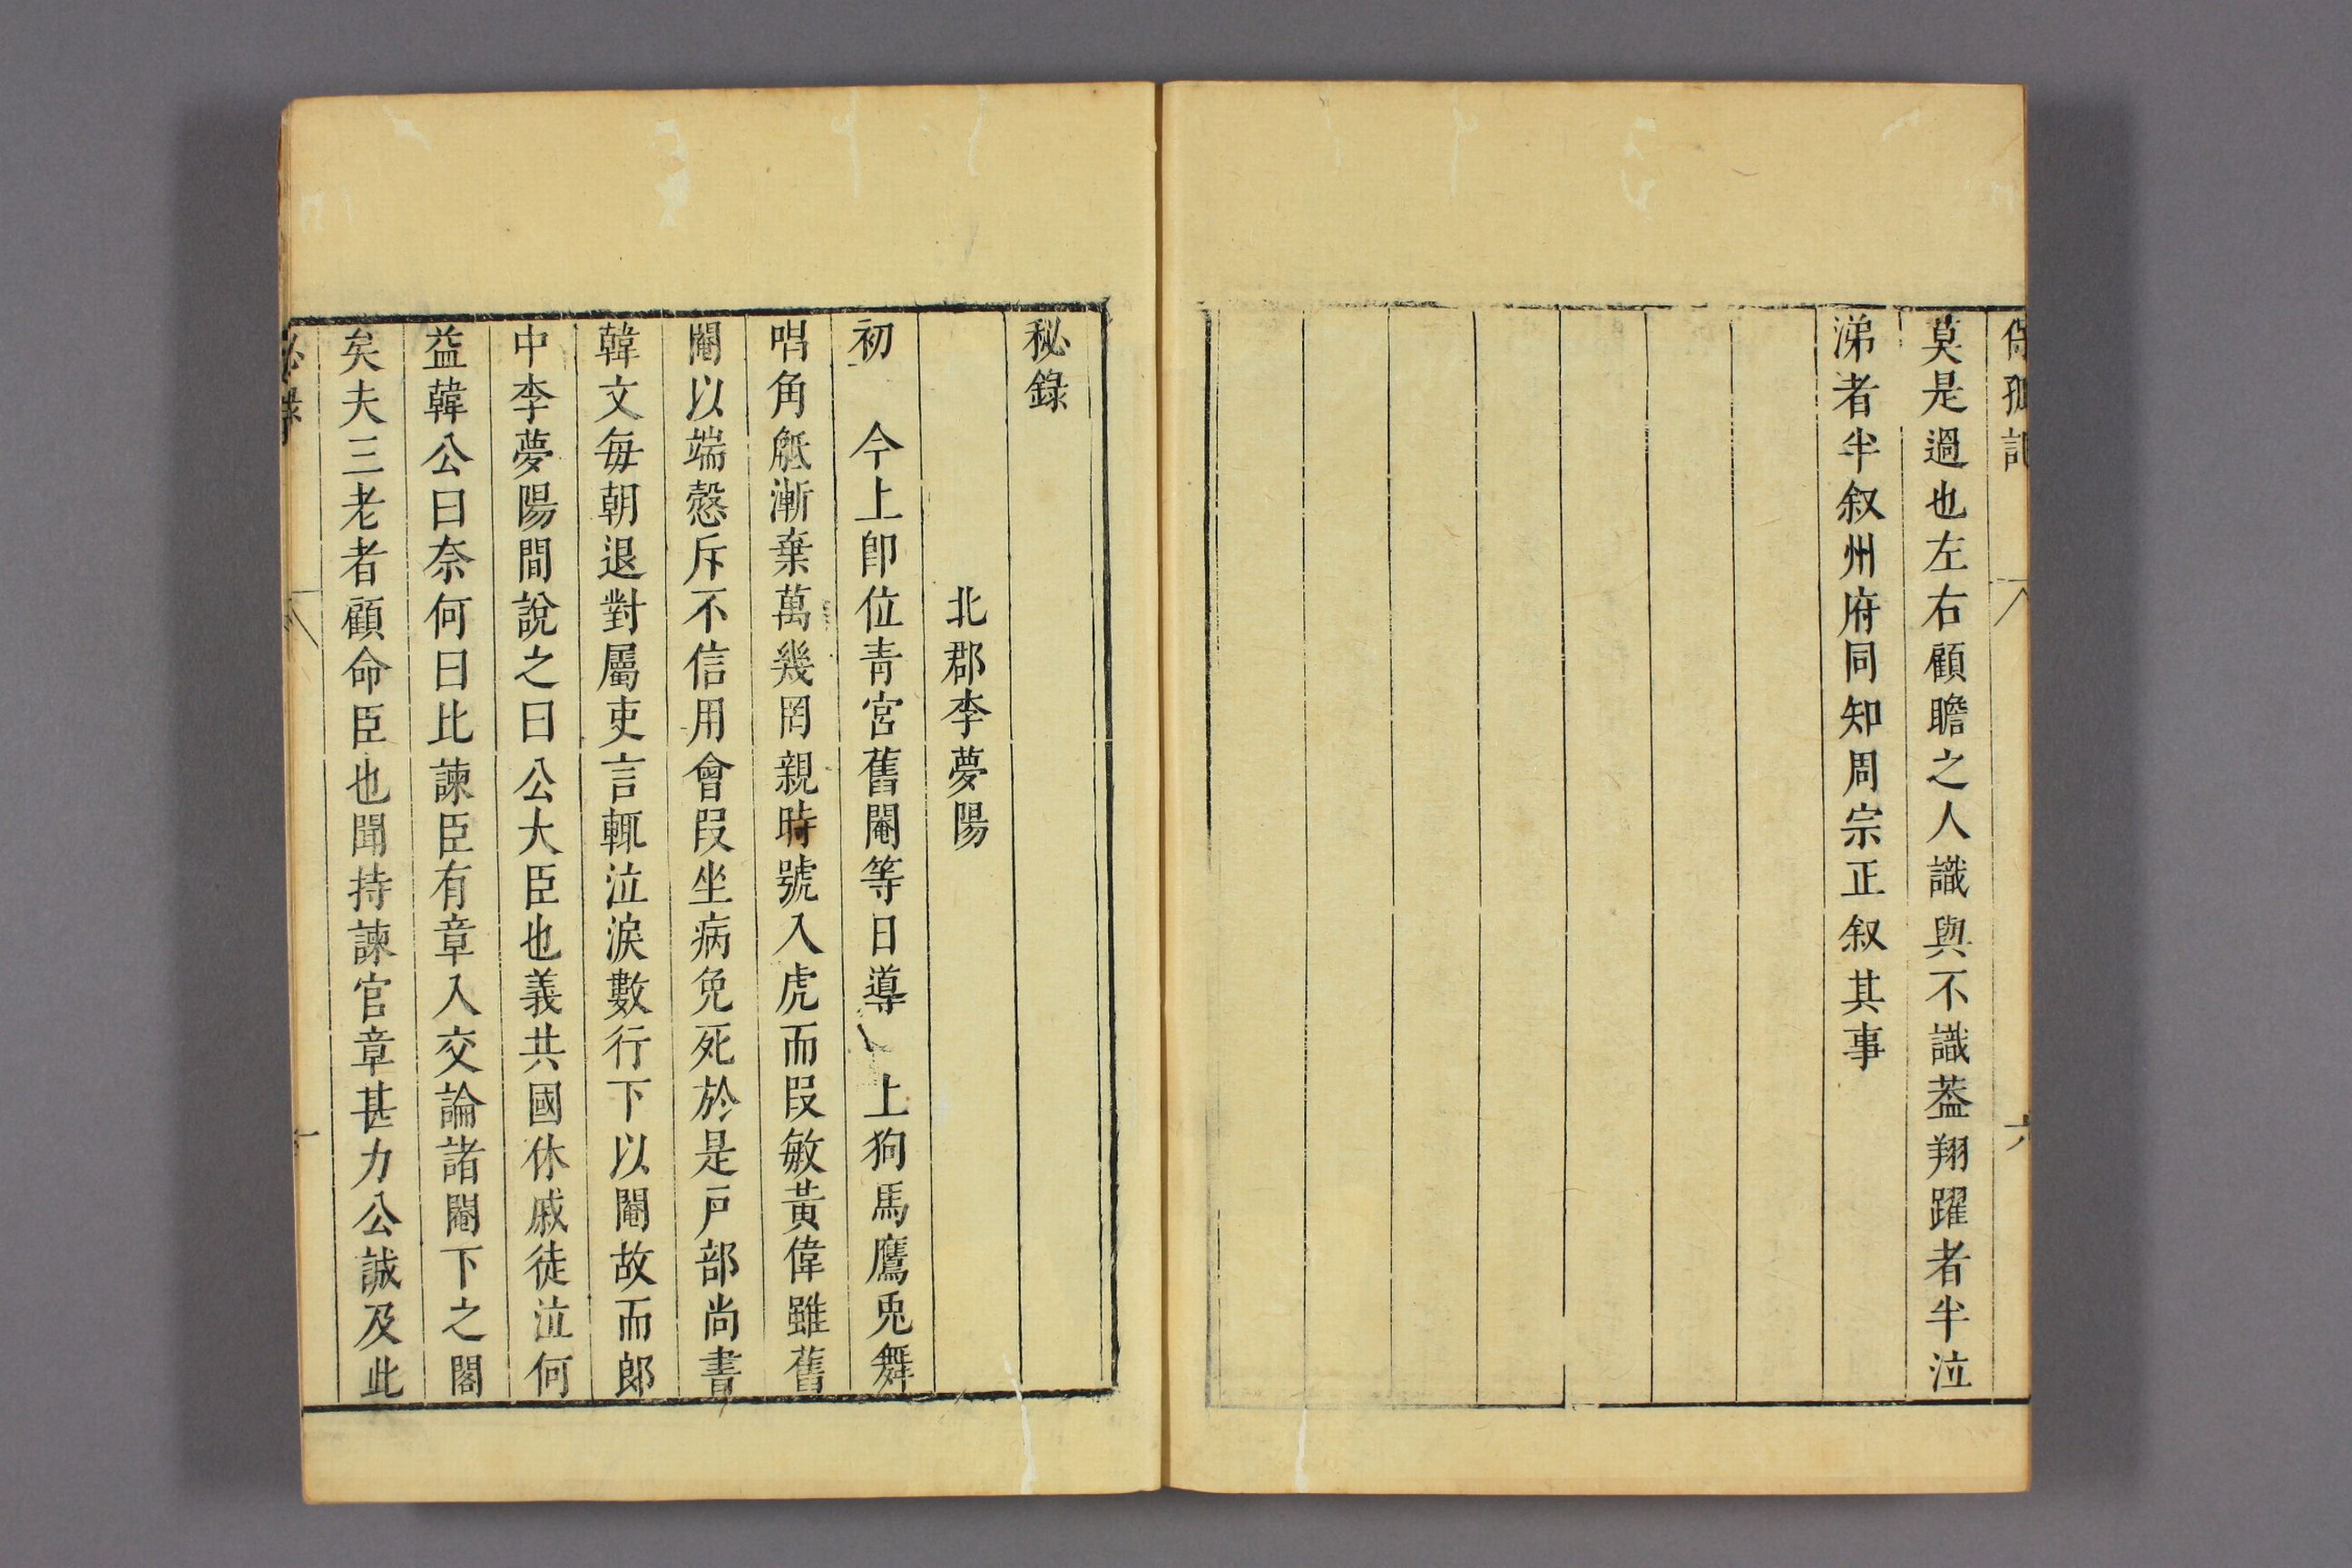 保孤記
六
莫是過也左右顧瞻之人識與不識葢翔躍者半泣
涕者半叙州府同知周宗正叙其事
秘錄
北郡李夢陽
初　今上卽位靑宮舊閹等日導　上狗馬鷹兎舞
唱角觝漸棄萬幾罔親時號入虎而段敏黃偉雖舊
閹以端慤斥不信用會段坐病免死於是戶部尚書
韓文每朝退對屬吏言輒泣淚數行下以閹故而郎
中李夢陽間說之曰公大臣也義共國休戚徒泣何
益韓公曰奈何曰比諫臣有章入交論諸閹下之閣
矣夫三老者顧命臣也聞持諫官章甚力公誠及此
秘錄
一